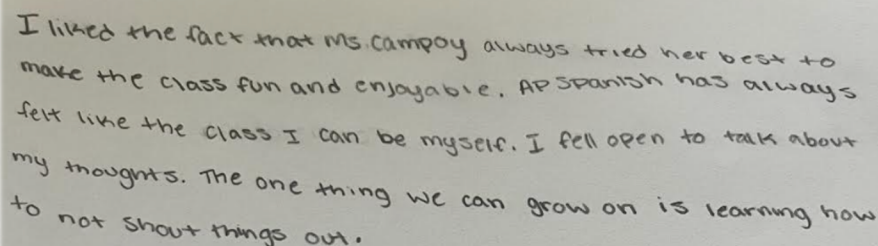 I liked the fact that Ms. Campoy always tried her best to
make the class fun and enjoyable. AP Spanish has always
felt like the class I can be myself. I fell open to talk about
my thoughts. The one thing we can grow on is learning how
to not shout things out.